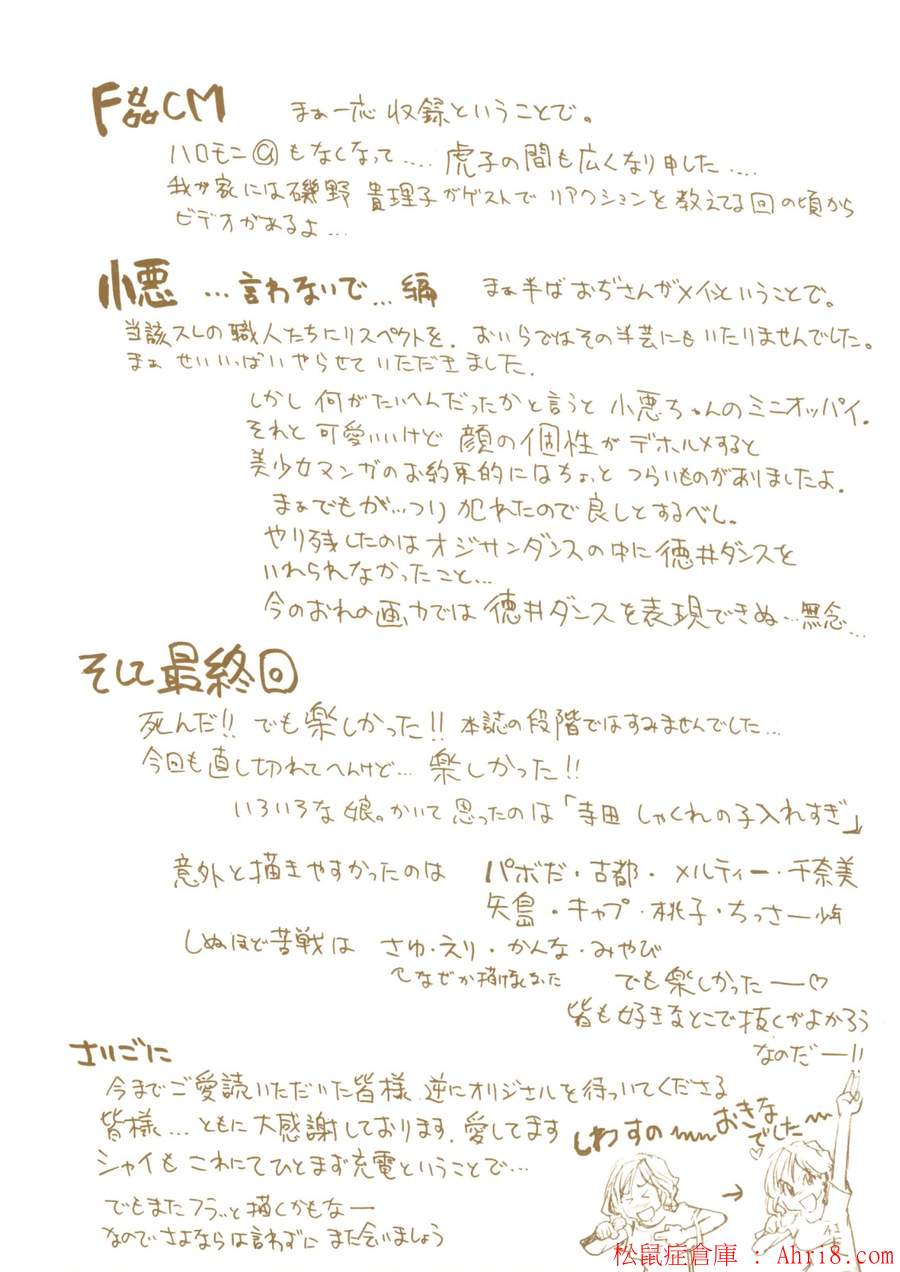 F磊CM　まぁ一応 収録ということで。
ハロモニ@もなくなって.... 虎子の間も広くなり申した....
我が家には磯野 貴理子がゲストで リアクションを教えてる回の頃から
ビデオがあるよ...
小悪 ...言わないで... 編　まぁ半ば おぢさんがメインということで。
当該スレの職人たちにリスペクトを. おいらではその半芸にもいたりませんでした。
まぁ せいいっぱいやらせていただきました.
しかし 何がたいへんだったかと言うと 小悪ちゃんのミニオッパイ.
それと 可愛いいけど 顔の個性が デホルメすると
美少女マンガのお約束的にはちょっと つらいものがありましたよ.
まぁでもが...つり 犯れたので良しとするべし。
やり残したのはオジサンダンスの中に徳井ダンスを
いれられなかったこと...
今のおれの画力では 徳井ダンスを表現できぬ...無念...
そして最終回
死んだ!! でも楽しかった!! 本誌の段階ではすみませんでした...
今回も直し切れてへんけど... 楽しかった!!
いろいろな娘。かいて思ったのは「寺田 しゃくれの子入れすぎ」
意外と描きやすかったのは　パボだ・古都・メルティー・千奈美
矢島・キャプ・桃子・ちっさー少年
しぬほど苦戦は　さゆ・えり・かんな・みやび
↑なぜか描けなかった　でも楽しかったー♡
皆も好きなとこで抜くがよかろう
なのだー!!
さいごに
今までご愛読いただいた皆様 逆にオリジナルを待ってくださる
皆様...ともに大感謝しております. 愛してます
シャイも これにてひとまず充電ということで...
でもまたフラッと描くかもなー
なのでさよならは言わずに また会いましょう
しわすの〜〜　おきな
でした〜
→
松鼠症倉庫 : Ahri8.com